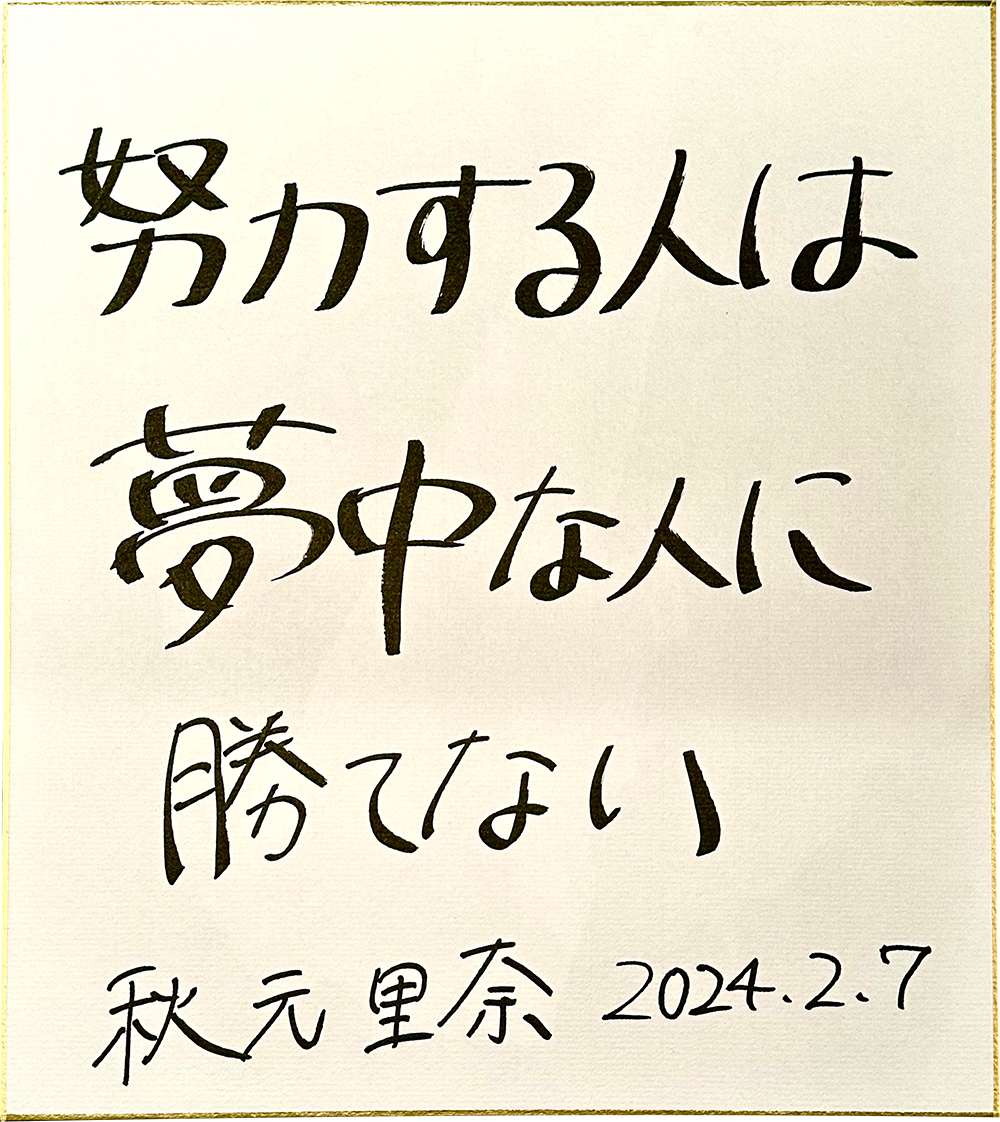 努力する人は
夢中な人に
勝てない
秋元里奈 2024.2.7